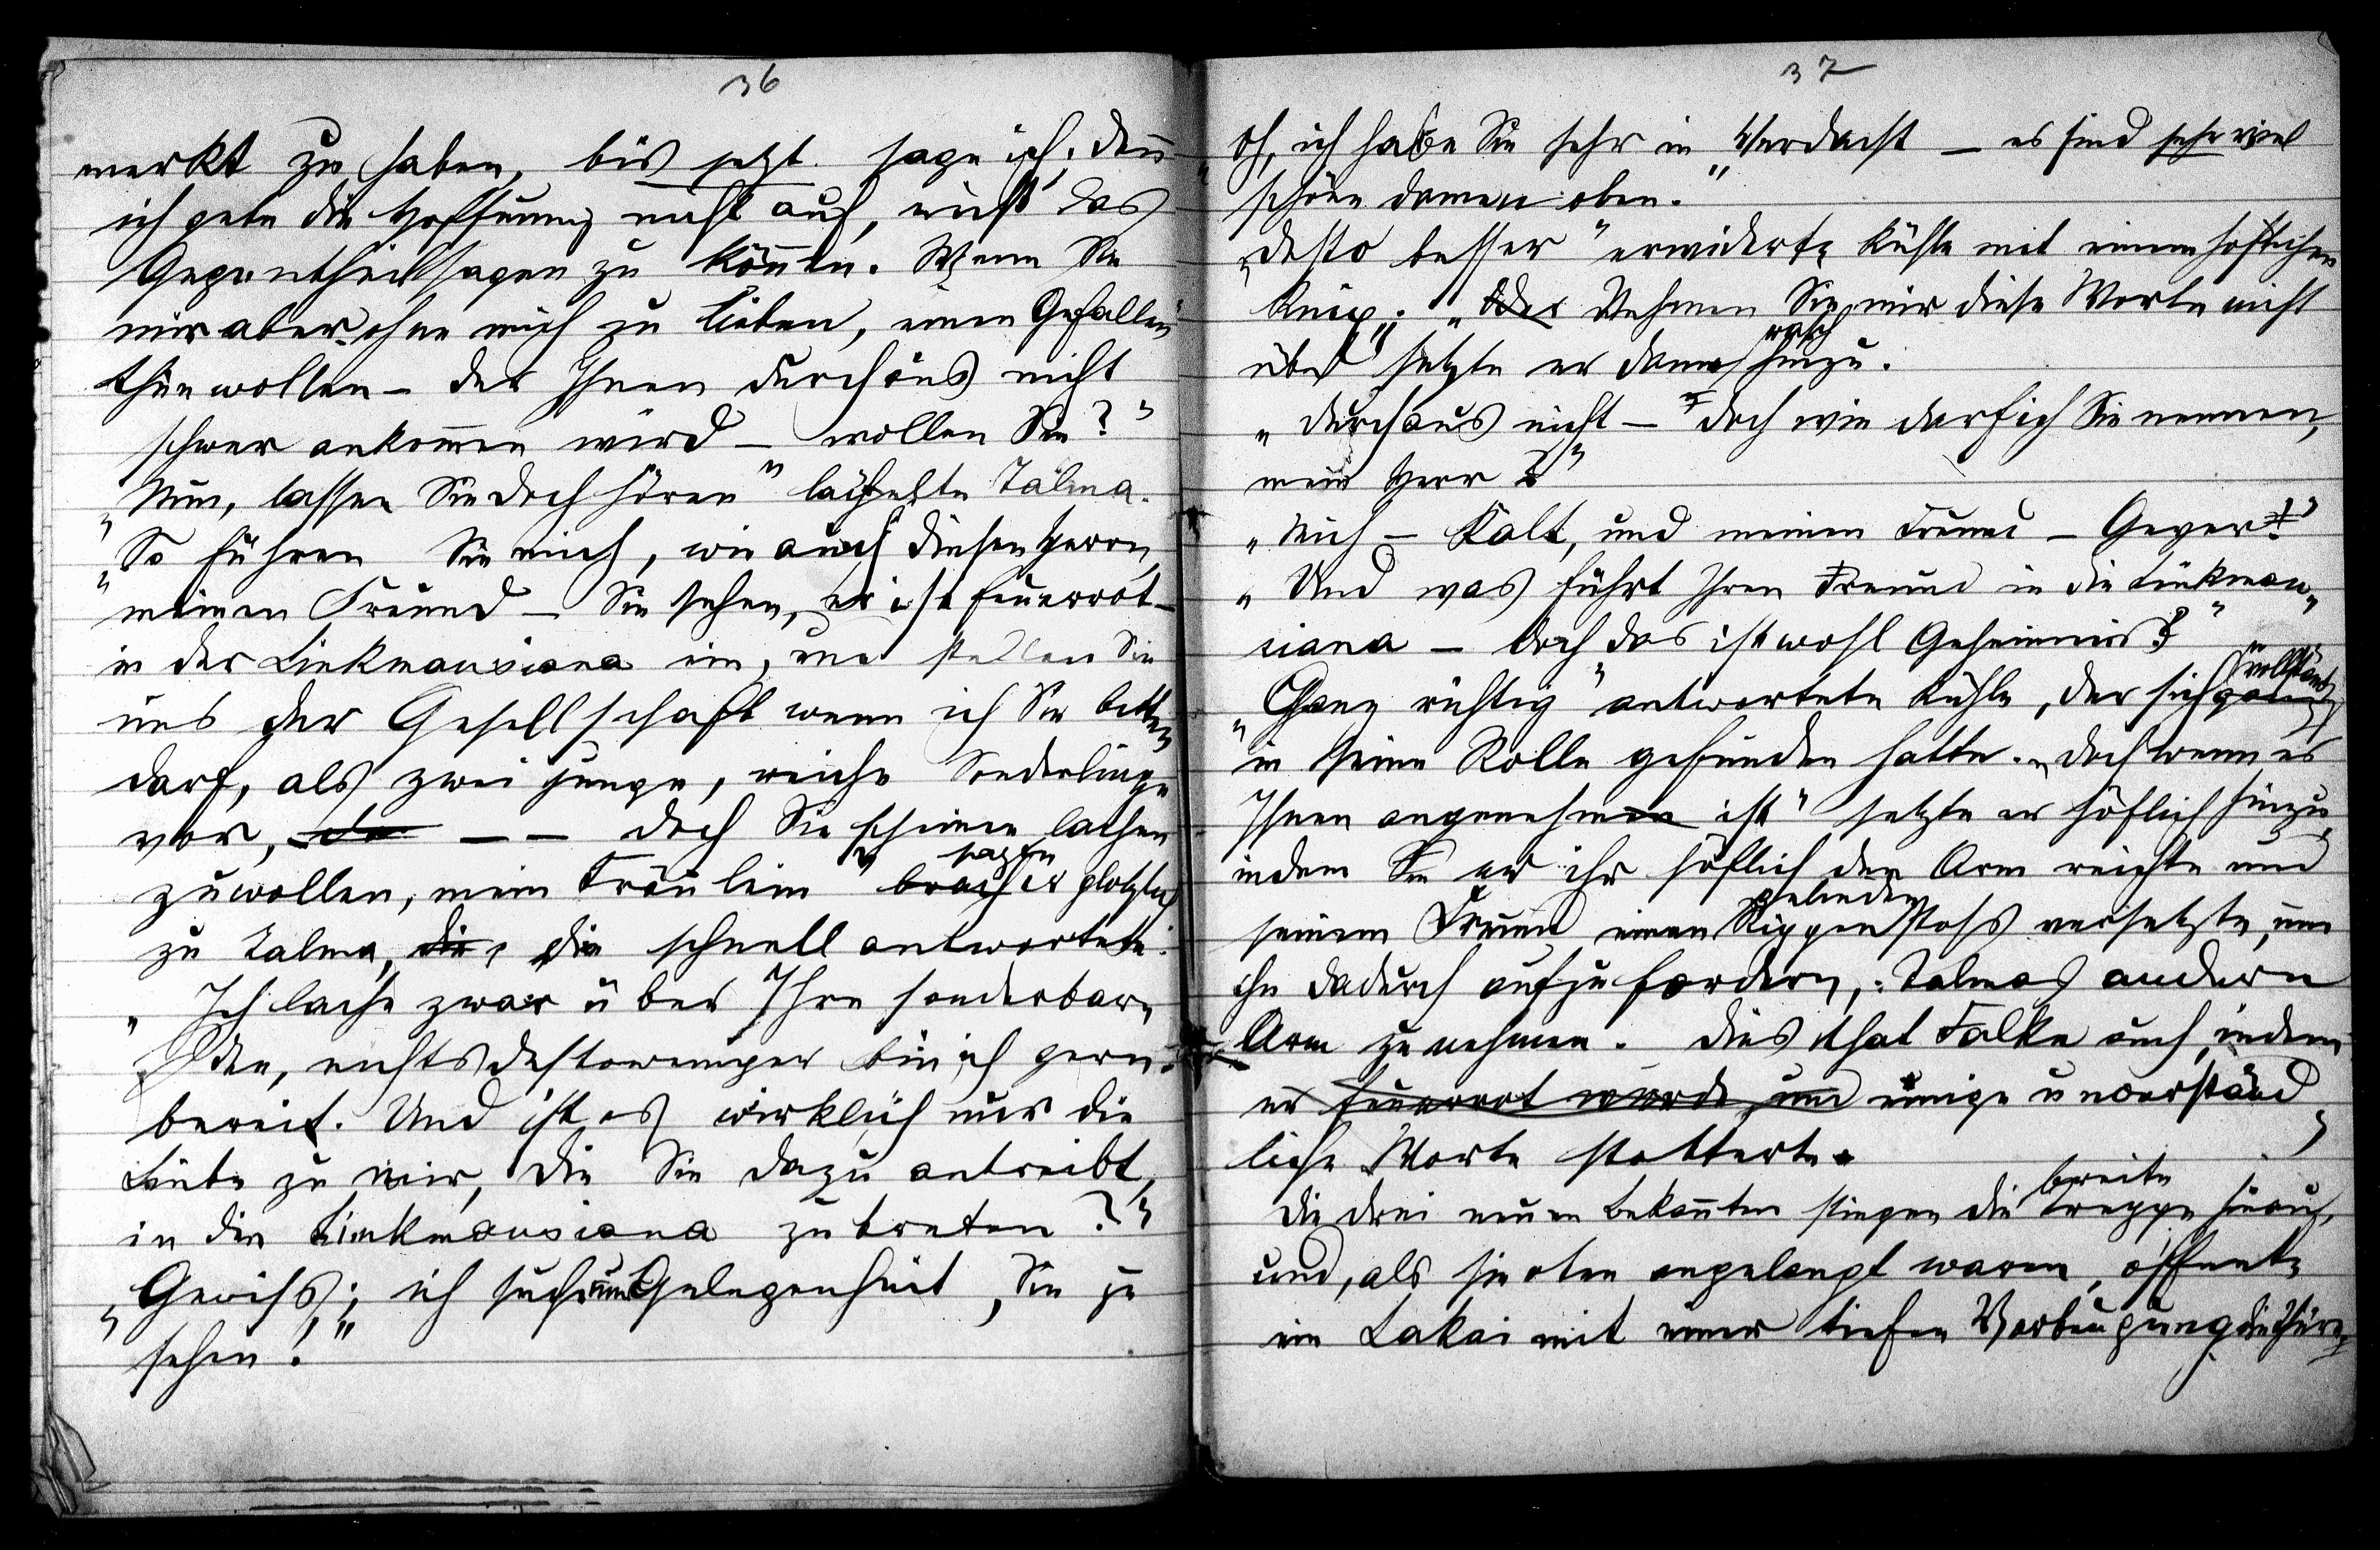 36
merkt zu haben, bis jetzt sage ich, denn
ich gebe die Hoffnung nicht auf, einst das
Gegentheil sagen zu können. Wenn Sie
mir aber, ohne mich zu lieben, einen Gefallen
thun wollen – der Ihnen durchaus nicht
schwer ankommen wird – wollen Sie?"
„Nun, lassen Sie doch hören" lächelte Talma.
„So führen Sie mich, wie auch diesen Herrn,
meinen Freund – Sie sehen, er ist feuerrot –
in der Linkmausiana ein, und stellen Sie
uns der Gesellschaft wenn ich Sie bitten
darf, als zwei junge, reiche Sonderlinge
vor, da – – doch Sie scheinen lachen
zu wollen, mein Fräulein" sagte brach er plötzlich
zu Talma, die, die schnell antwortete:
„Ich lache zwar über Ihre sonderbare
Idee, nichtsdestoweniger bin ich gern
bereit. Und ist es wirklich nur die
Liebe zu mir, die Sie dazu antreibt,
in die Linkmausiana zu treten?"
„Gewiss; ich suche nur Gelegenheit, Sie zu
sehen!"
37
„Oh, ich habe Sie sehr in Verdacht – es sind sehr viel
schöne Damen oben."
„Desto besser" erwiderte Kühle mit einem höflichen
Knix. „Oder Nehmen Sie mir diese Worte nicht
übel" setzte er dann rasch hinzu.
„Durchaus nicht – doch wie darf ich Sie nennen,
mein Herr?"
„Mich – Kalt, und meinen Freund – Geyer!"
„Und was führt Ihren Freund in die Linkmau-
siana – doch das ist wohl Geheimnis?"
„Ganz richtig" antwortete Kühle, der sich ganz vollständig
in seine Rolle gefunden hatte. „Doch wenn es
Ihnen angenehm ist" setzte er höflich hinzu,
indem Sie er ihr höflich den Arm reichte und
seinem Freund einen gelinden Rippenstoss versetzte, um
ihn dadurch aufzufordern, Talmas andern
Arm zu nehmen. Dies that Falke auch, indem
er feuerrot wurde und einige unverständ
liche Worte stotterte.
Die drei neuen Bekannten stiegen die breite Treppe hinauf,
und, als sie oben angelangt waren, öffnete
ein Lakai mit einer tiefen Verbeugung die Thüre,